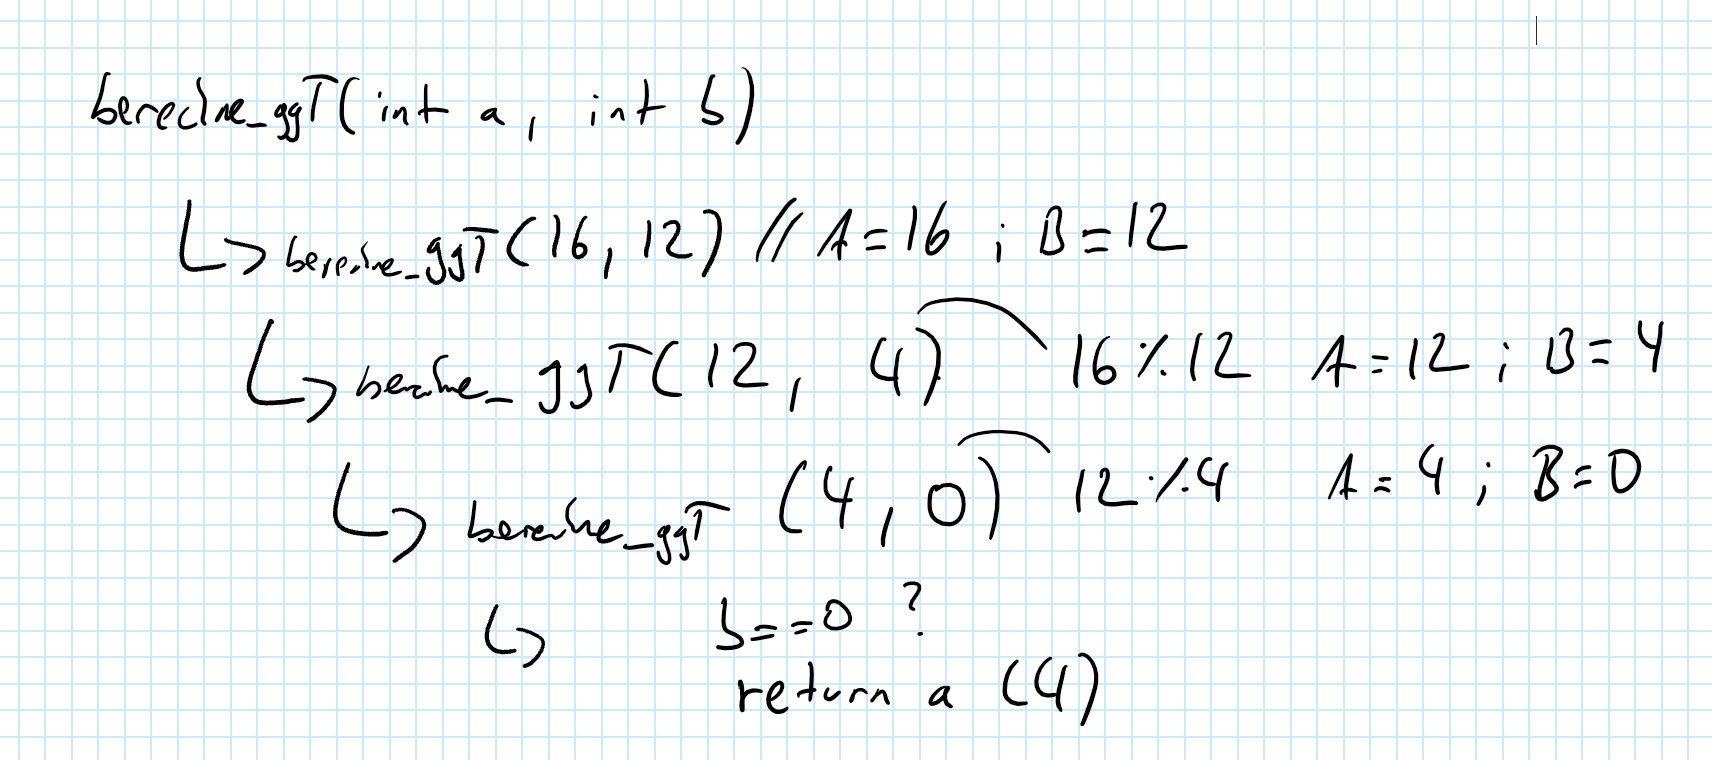 berechne_ggT(int a, int b)
↳ berechne_ggT(16, 12) // A=16 ; B=12
↳ berechne_ggT(12, 4) 16%12 A=12 ; B=4
↳ berechne_ggT (4, 0) 12%4 A=4 ; B=0
↳ b==0 ?
return a (4)